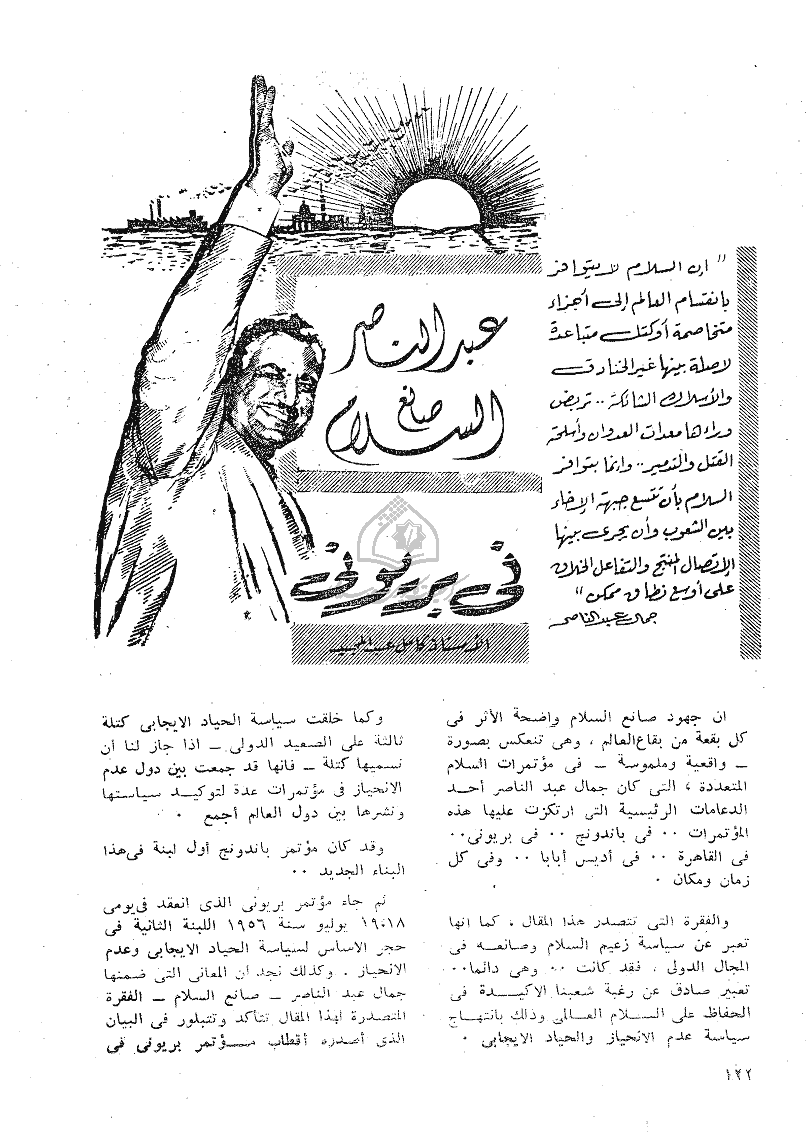 عبد الناصر
صانع
السلام
فى بريونى
الأستاذ كامل عبد المجيد
" إن السلام لا يتوافر
بانقسام العالم إلى أجزاء
متخاصمة أو كتل متباعدة
لا صلة بينها غير الخنادق
والأسلاك الشائكة .. تربض
وراءها معدات العدوان وأسلحة
القتل والتدمير .. وإنما يتوافر
السلام بأن تتسع جبهة الإخاء
بين الشعوب وأن يجرى بينها
الإتصال المنتج والتفاعل الخلاق
على أوسع نطاق ممكن "
جمال عبد الناصر
ان جهود صانع السلام واضحة الأثر فى
كل بقعة من بقاع العالم ، وهى تنعكس بصورة
ــ واقعية وملموسة ــ فى مؤتمرات السلام
المتعددة ، التى كان جمال عبد الناصر أحــد
الدعامات الرئيسية التى ارتكزت عليها هذه
المؤتمرات ٠٠ فى باندونج ٠٠ فى بريونى٠٠
فى القاهرة ٠٠ فى أديس أبابا ٠٠ وفى كل
زمان ومكان ٠
والفقرة التى تتصدر هذا المقال ، كما انها
تعبر عن سياسة زعيم السلام وصانعــه فى
المجال الدولى ، فقد كانت ٠٠ وهى دائما٠٠
تعبير صادق عن رغبة شعبنا الاكيــدة فى
الحفاظ على الســلام العــالمى وذلك بانتهــاج
سياسة عدم الانحياز والحياد الايجابى ٠
وكما خلقت سياسة الحياد الايجابى كتلة
ثالثة على الصعيد الدولى ــ اذا جاز لنا أن
نسميها كتلة ــ فانها قد جمعت بين دول عدم
الانحياز فى مؤتمرات عدة لتوكيــد سياستها
ونشرها بين دول العالم أجمع ٠
وقد كان مؤتمر باندونج أول لبنة فى هذا
البناء الجديد ٠٠
ثم جاء مؤتمر بريونى الذى انعقد فى يومى
١٨،١٩ يوليو سنة ١٩٥٦ اللبنة الثانية فى
حجر الاساس لسياسة الحياد الايجابى وعدم
الانحياز . وكذلك نجد أن المعانى التى ضمنها
جمال عبد الناصر ــ صانع السلام ــ الفقرة
المتصدرة لهذا المقال تتأكد وتتبلور فى البيان
الذى أصدره أقطاب مــؤتمر بريونى فى
١٢٢